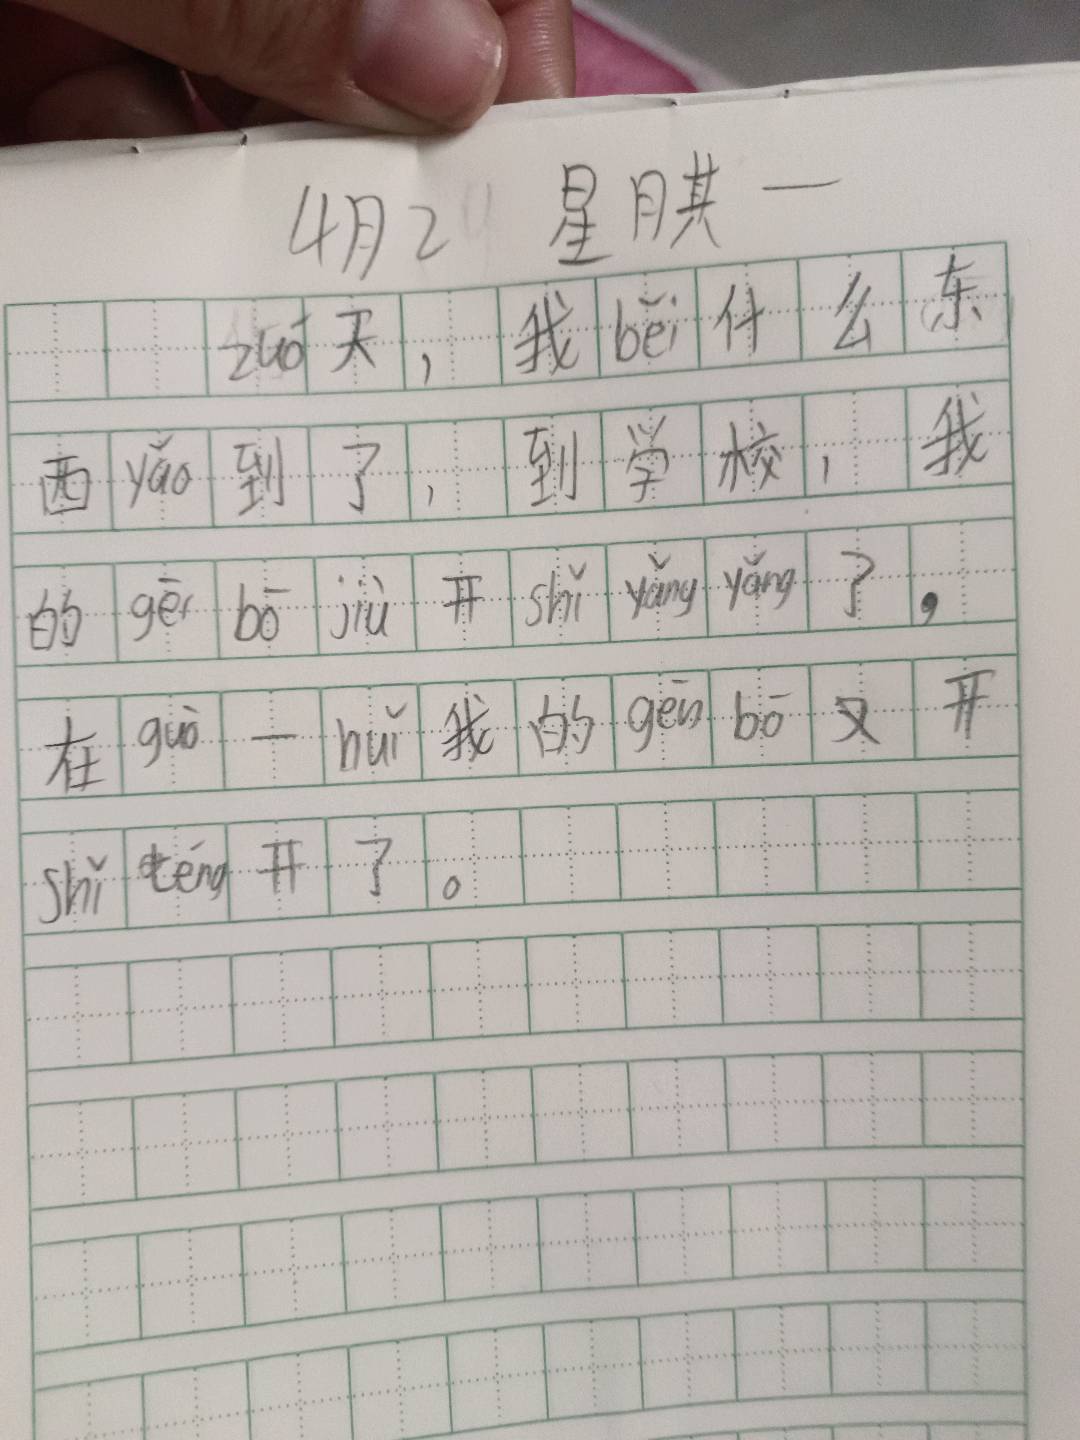 4月2 星期一
zuó天，我běi什么东
西yǎo到了，到学校，我
的gēr bō jiù开shǐ yǎng yǎng了。
在guò一huǐ我的gēn bō又开
shǐ téng开了。